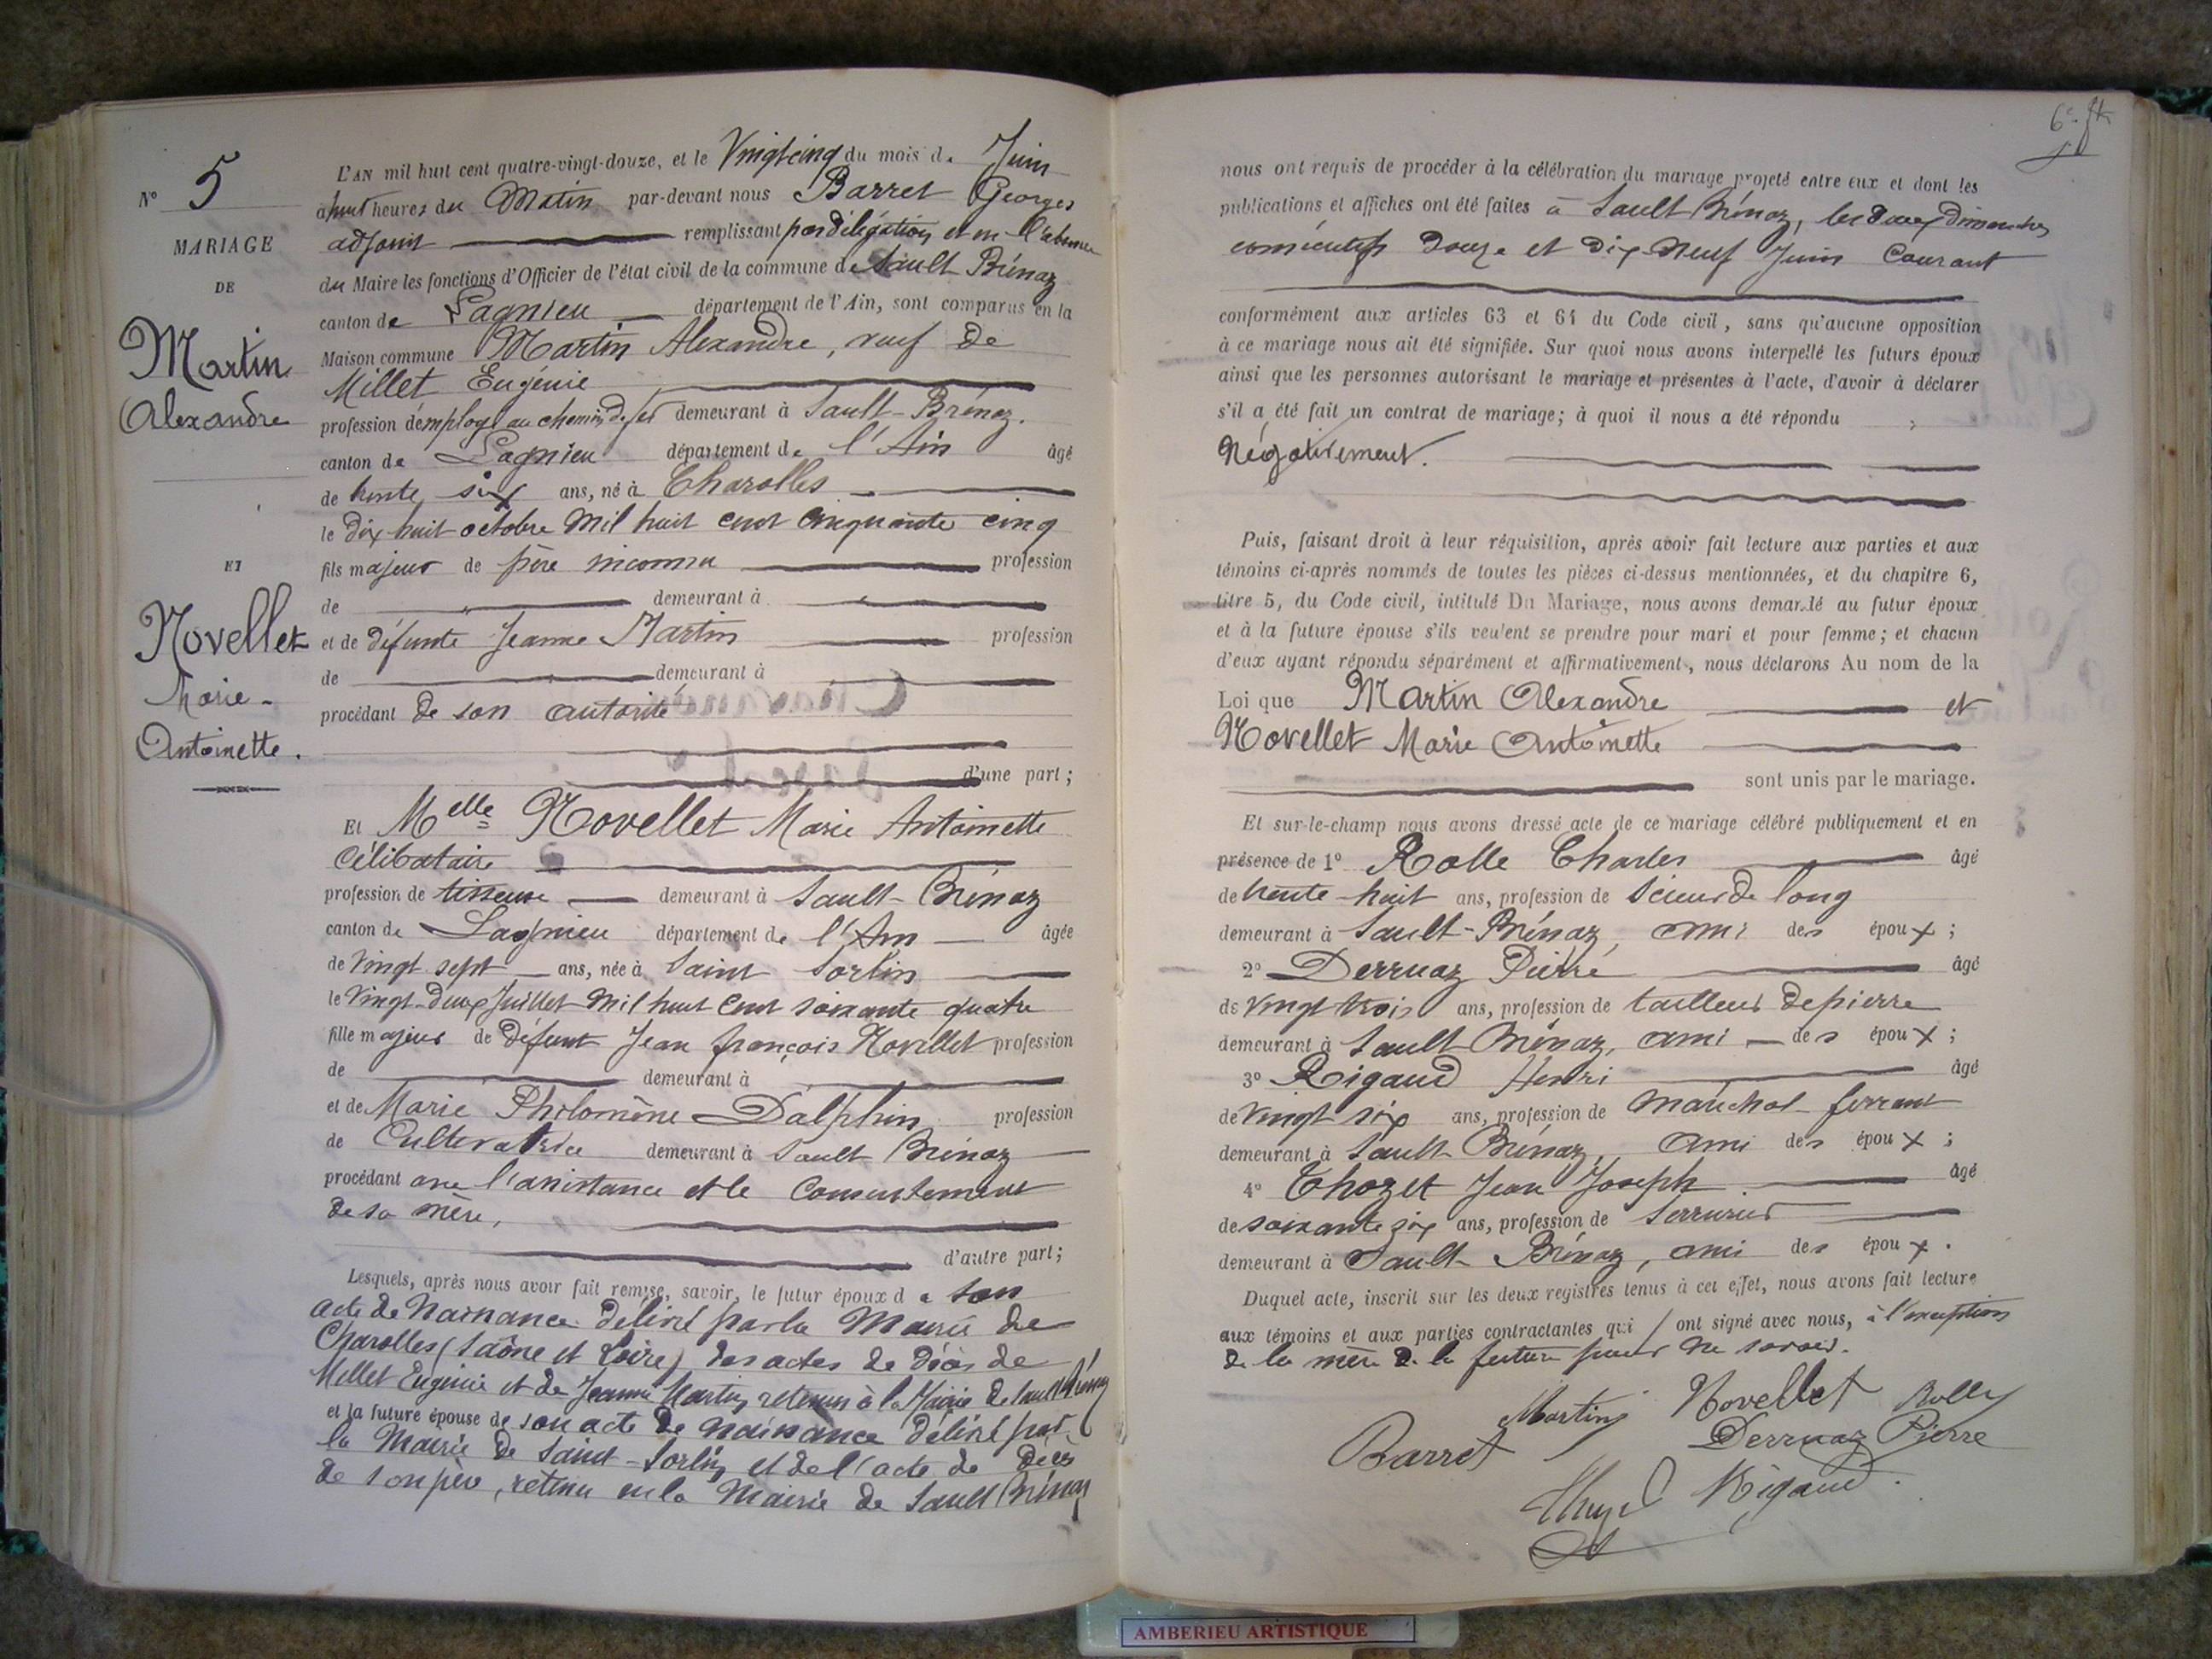 N° 5
MARIAGE
DE
Martin
Alexandre
ET
Novellet
Marie-
Antoinette.
L'AN mil huit cent quatre-vingt-douze, et le Vingt cinq du mois de Juin
à huit heures du Matin par-devant nous Barret Georges
adjoint remplissant par délégation et en l'absence
du Maire les fonctions d'Officier de l'état civil de la commune de Sault Brénaz
canton de Lagnieu département de l'Ain, sont comparus en la
Maison commune Martin Alexandre, veuf de
Millet Eugénie
profession d'employé au chemin de fer demeurant à Sault-Brénaz.
canton de Lagnieu département de l'Ain âgé
de trente six ans, né à Charolles
le dix huit octobre mil huit cent cinquante cinq
fils majeur de père inconnu profession
de demeurant à
et de défunte Jeanne Martin profession
de demeurant à
procédant de son autorité
d'une part;
Et Melle Novellet Marie Antoinette
Célibataire
profession de tisseuse demeurant à Sault-Brénaz
canton de Lagnieu département de l'Ain âgée
de Vingt sept ans, née à Saint Sorlin
le Vingt-deux Juillet mil huit cent soixante quatre
fille majeur de défunt Jean françois Novellet profession
de demeurant à
et de Marie Philomène Dalphin profession
de Cultivatrice demeurant à Sault Brénaz
procédant avec l'assistance et le consentement
de sa mère,
d'autre part;
Lesquels, après nous avoir fait remise, savoir, le futur époux de son
acte de Naissance délivré par la Mairie de
Charolles (Saône et Loire) des actes de décès de
Millet Eugénie et de Jeanne Martin, retenus à la Mairie de Sault Brénaz
et la future épouse de son acte de naissance délivré par
la Mairie de Saint-Sorlin, et de l'acte de décès
de son père, retenu en la Mairie de Sault Brénaz
nous ont requis de procéder à la célébration du mariage projeté entre eux et dont les
publications et affiches ont été faites à Sault Brénaz, les deux Dimanches
consécutifs Douze et Dix-Neuf Juin Courant
conformément aux articles 63 et 64 du Code civil, sans qu'aucune opposition
à ce mariage nous ait été signifiée. Sur quoi nous avons interpellé les futurs époux
ainsi que les personnes autorisant le mariage et présentes à l'acte, d'avoir à déclarer
s'il a été fait un contrat de mariage; à quoi il nous a été répondu
négativement.
Puis, faisant droit à leur réquisition, après avoir fait lecture aux parties et aux
témoins ci-après nommés de toutes les pièces ci-dessus mentionnées, et du chapitre 6,
titre 5, du Code civil, intitulé Du Mariage, nous avons demandé au futur époux
et à la future épouse s'ils veulent se prendre pour mari et pour femme; et chacun
d'eux ayant répondu séparément et affirmativement, nous déclarons Au nom de la
Loi que Martin Alexandre et
Novellet Marie Antoinette
sont unis par le mariage.
Et sur-le-champ nous avons dressé acte de ce mariage célébré publiquement et en
présence de 1° Rolle Charles âgé
de trente-huit ans, profession de Scieur de long
demeurant à Sault-Brénaz, ami des époux;
2° Derruaz Pierre âgé
de vingt trois ans, profession de tailleur de pierre
demeurant à Sault Brénaz, ami des époux;
3° Rigaud Henri âgé
de vingt six ans, profession de maréchal ferrant
demeurant à Sault Brénaz, ami des époux;
4° Thozet Jean Joseph âgé
de soixante six ans, profession de Serrurier
demeurant à Sault Brénaz, ami des époux.
Duquel acte, inscrit sur les deux registres tenus à cet effet, nous avons fait lecture
aux témoins et aux parties contractantes qui ont signé avec nous, à l'exception
de la mère de la future pour ne savoir.
Martin Novellet Rolle
Barret Derruaz Pierre
Rigaud
AMBERIEU ARTISTIQUE